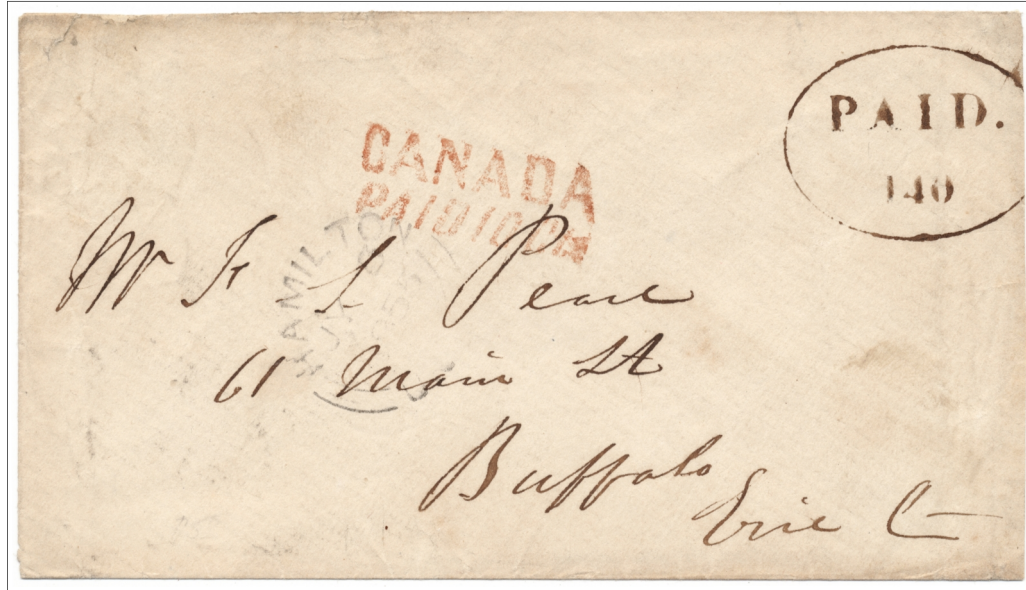 PAID.
140
CANADA
PAID 10 Cts
HAMILTON
Mr F L Pearl
61 Main St
Buffalo
Erie C